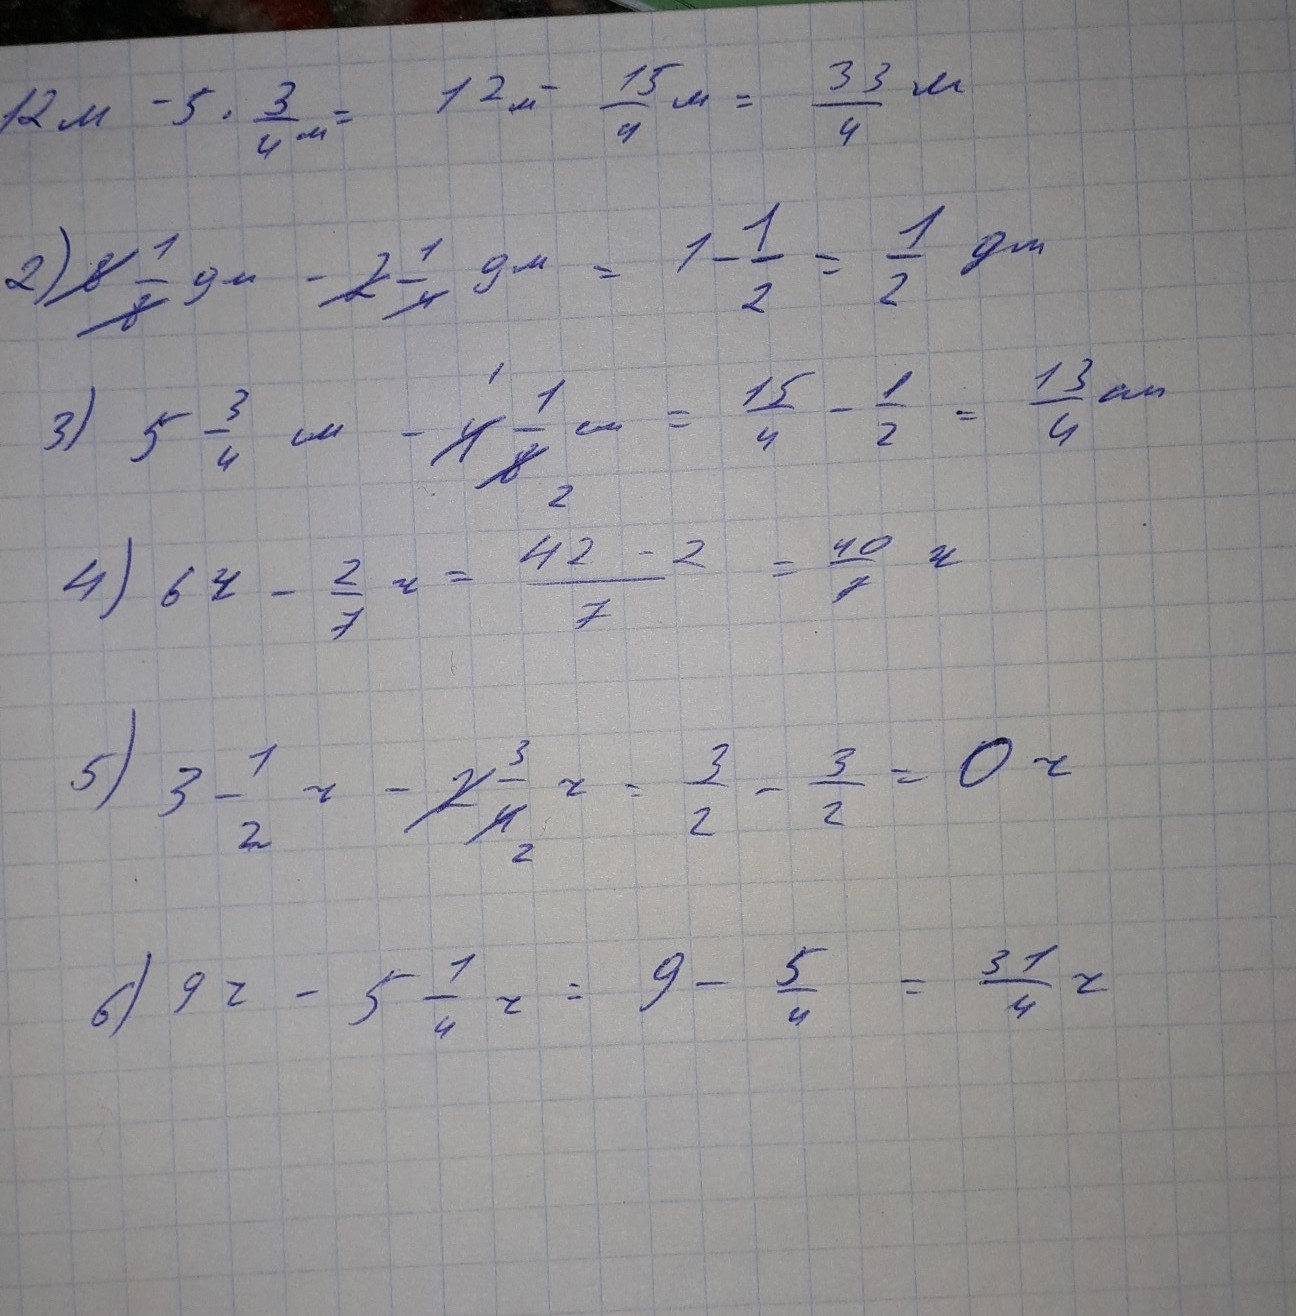 12 м - 5 · 3/4 м = 12 м - 15/4 м = 33/4 м
2) 8 1/8 дм - 2 1/4 дм = 1 - 1/2 = 1/2 дм
3) 5 3/4 см - 4 1/8 см = 15/4 - 1/2 = 13/4 см
4) 6 ч - 2/7 ч = 42 - 2/7 = 40/7 ч
5) 3 1/2 ч - 2 3/4 ч = 3/2 - 3/2 = 0 ч
6) 9 ч - 5 1/4 ч = 9 - 5/4 = 31/4 ч